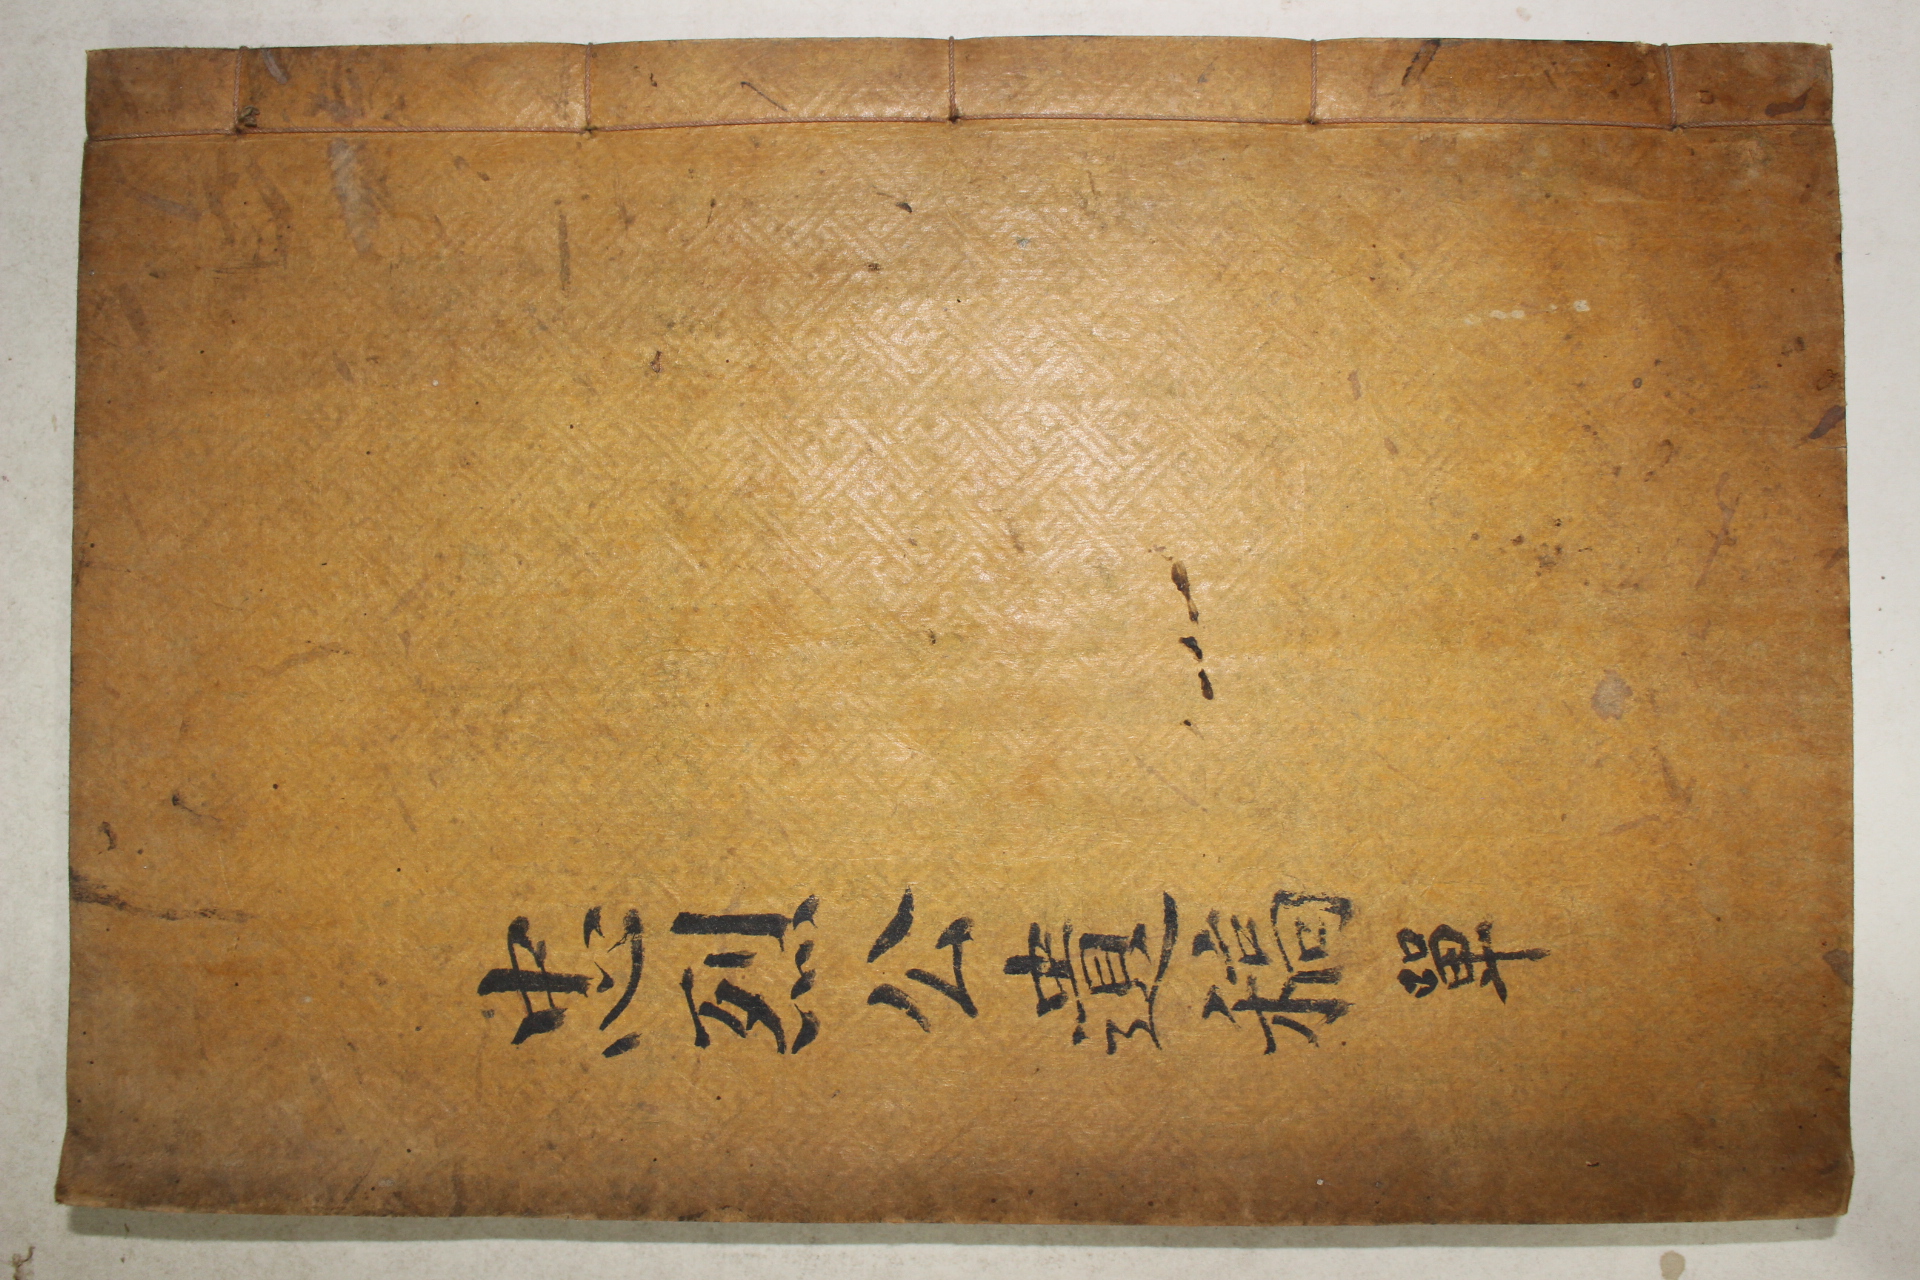 忠烈公遺稿 單